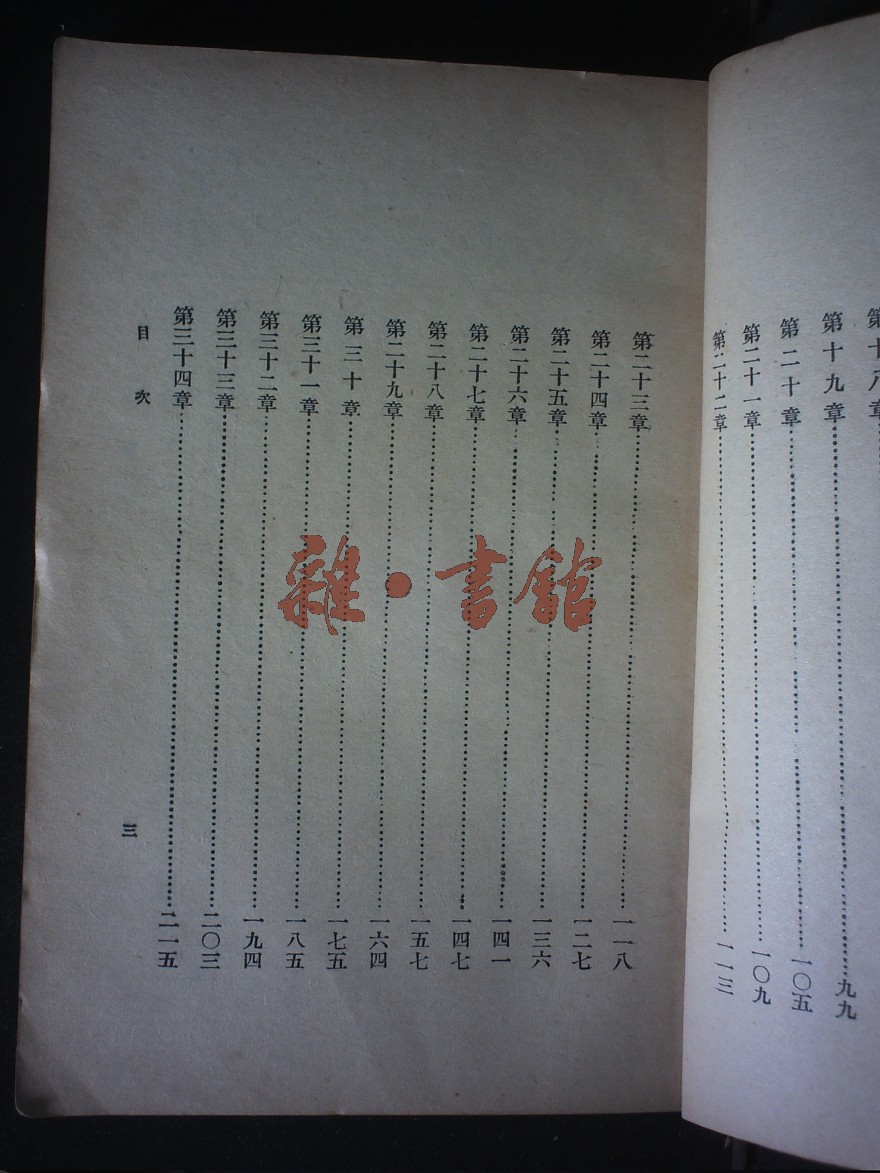 第十八章
第十九章……九九
第二十章……一〇五
第二十一章……一〇九
第二十二章……一一三
第二十三章……一一八
第二十四章……一二七
第二十五章……一三六
第二十六章……一四一
第二十七章……一四七
第二十八章……一五七
第二十九章……一六四
第三十章……一七五
第三十一章……一八五
第三十二章……一九四
第三十三章……二〇三
第三十四章……二一五
目次
三
雜·書館